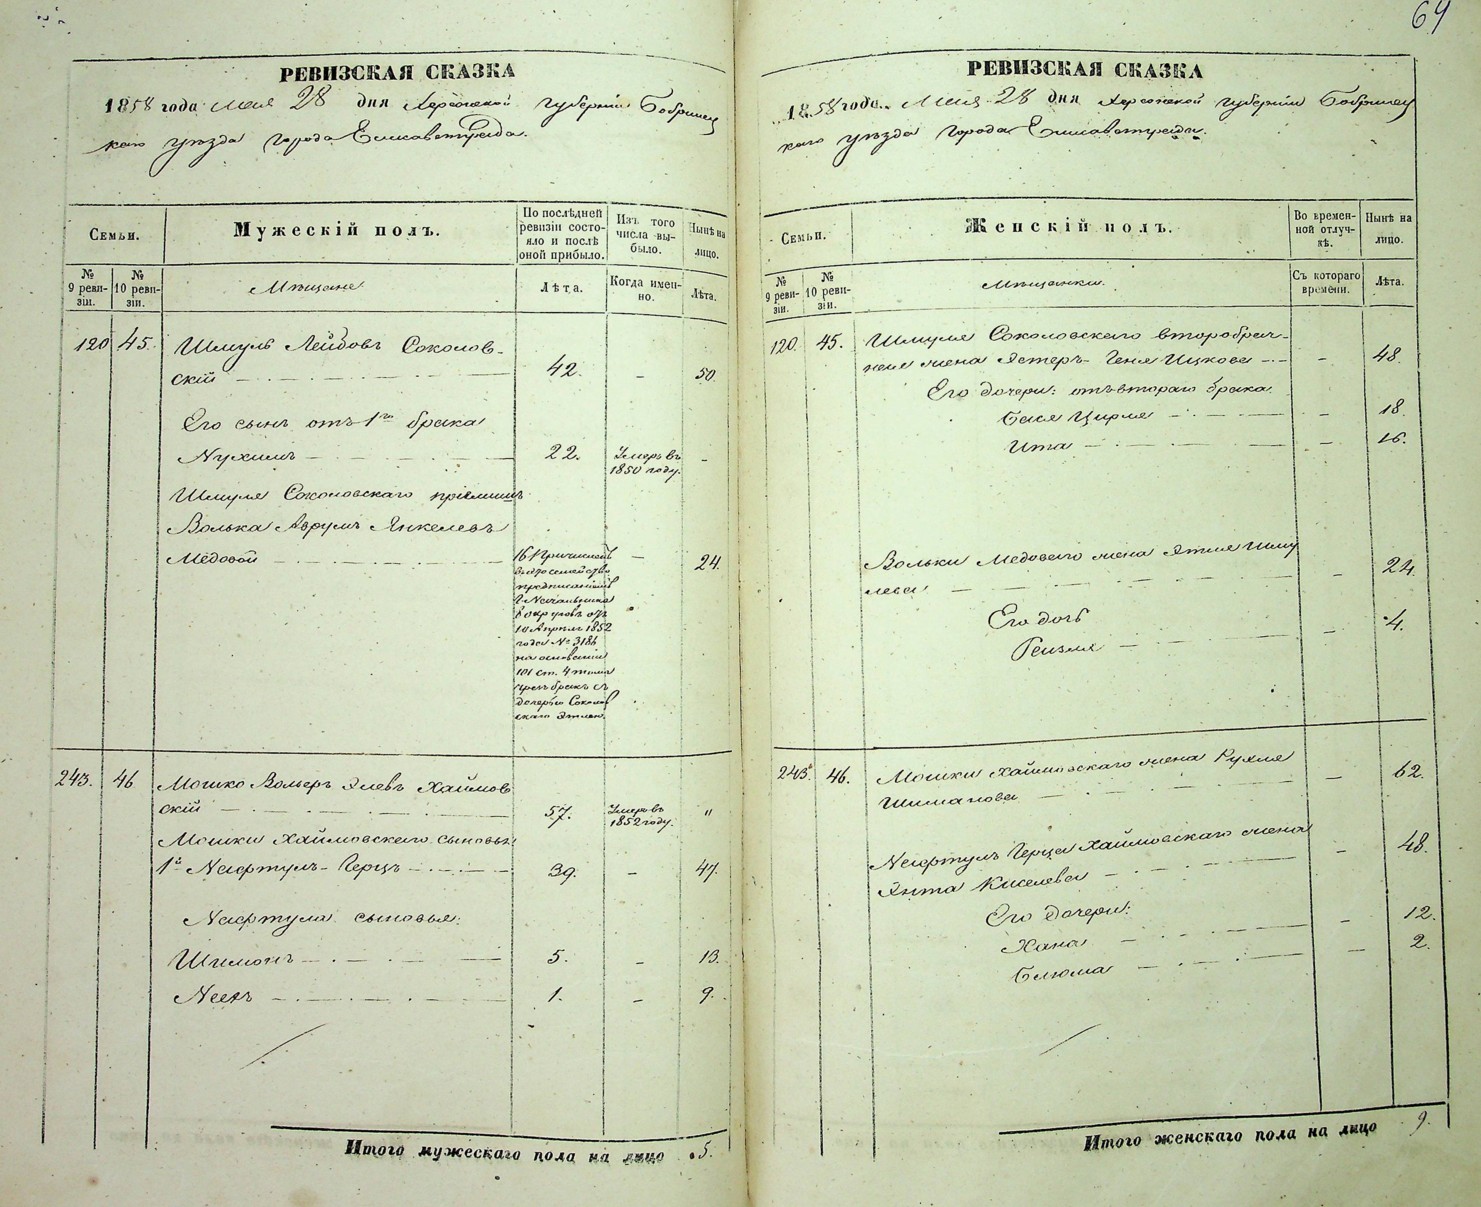 64
РЕВИЗСКАЯ СКАЗКА
1858 года Мая 28 дня Херсонской губерніи Бобринец
каго уѣзда города Елисаветграда.
Семьи.
Мужескій полъ.
По послѣдней ревизіи состояло и послѣ оной прибыло.
Изъ того числа выбыло.
Нынѣ на лицо.
№ 9 ревизіи.
№ 10 ревизіи.
Мѣщане
Лѣта.
Когда именно.
Лѣта.
120 45. Шмуль Лейбовъ Соколов-
скій 42. – 50.
Его сынъ отъ 1го брака
Нухимъ 22. Умеръ въ 1850 году. –
Шмуля Соколовскаго пріемышъ
Волька Аврумъ Янкелевъ
Медовой 16 – 24.
Причисленъ
въ это семейство
предписаніемъ
г. Начальника
округовъ отъ
10 Апрѣля 1852
года № 3184
на основаніи
101 ст. 4 тома
чрезъ бракъ съ
дочерью Соколов
скаго Этлею.
243. 46 Мошко Вольеръ Элевъ Хаймов
скій 57. Умеръ въ 1852 году. "
Мошки Хаймовскаго сыновья:
1й Нафтулъ-Герцъ 39. – 47.
Нафтула сыновья:
Шимонъ 5. – 13.
1. – 9.
Итого мужескаго пола на лицо 5.
РЕВИЗСКАЯ СКАЗКА
1858 года Мая 28 дня Херсонской губерніи Бобринец
каго уѣзда города Елисаветграда.
Семьи.
Женскій полъ.
Во временной отлучкѣ.
Нынѣ на лицо.
№ 9 ревизіи.
№ 10 ревизіи.
Мѣщанки.
Съ котораго времени.
Лѣта.
120. 45. Шмуля Соколовскаго второбрач-
ная жена Эстеръ-Геня Ицкова – 48.
Его дочери: отъ втораго брака
Бася Цирля – 18.
Ита – 16.
Вольки Медоваго жена Этля Шму
лева – 24.
Его дочь
Рейзля – 4.
243. 46. Мошки Хаймовскаго жена Рухля
Шиманова – 62.
Нафтулъ Герца Хаймовскаго жена
Янта Киселева – 48.
Его дочери:
Хана – 12.
Блюма – 2.
Итого женскаго пола на лицо 9.